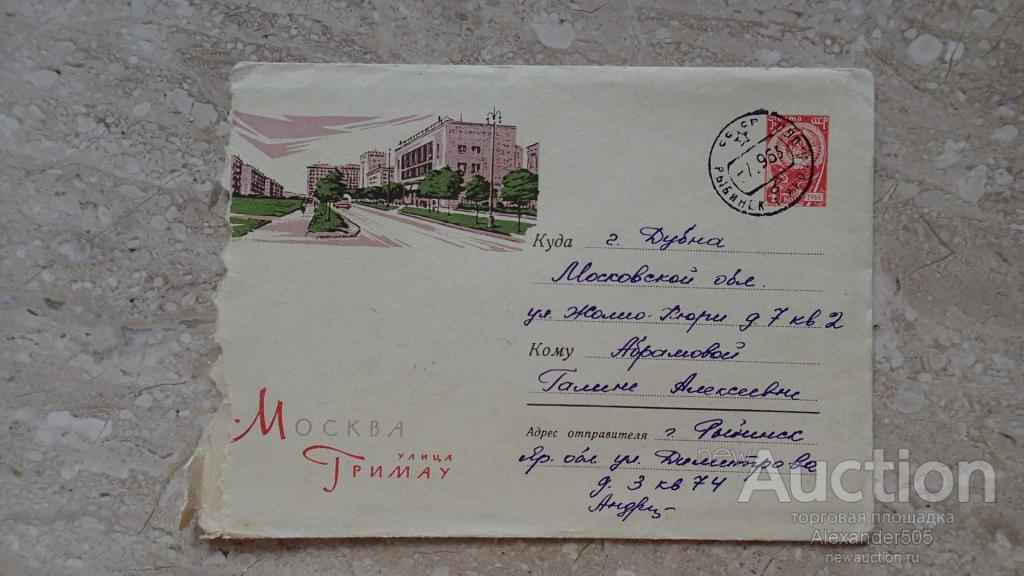 Почта СССР
1961
СССР
7.9.63
РЫБИНСК
Куда г. Дубна
Московской обл.
ул. Жолио-Кюри д. 7 кв 2
Кому Абрамовой
Галине Алексеевне
Адрес отправителя г. Рыбинск
Яр. обл ул. Димитрова
д. 3 кв 74
МОСКВА
УЛИЦА
ГРИМАУ
newAuction
торговая площадка
Alexander505
newauction.ru